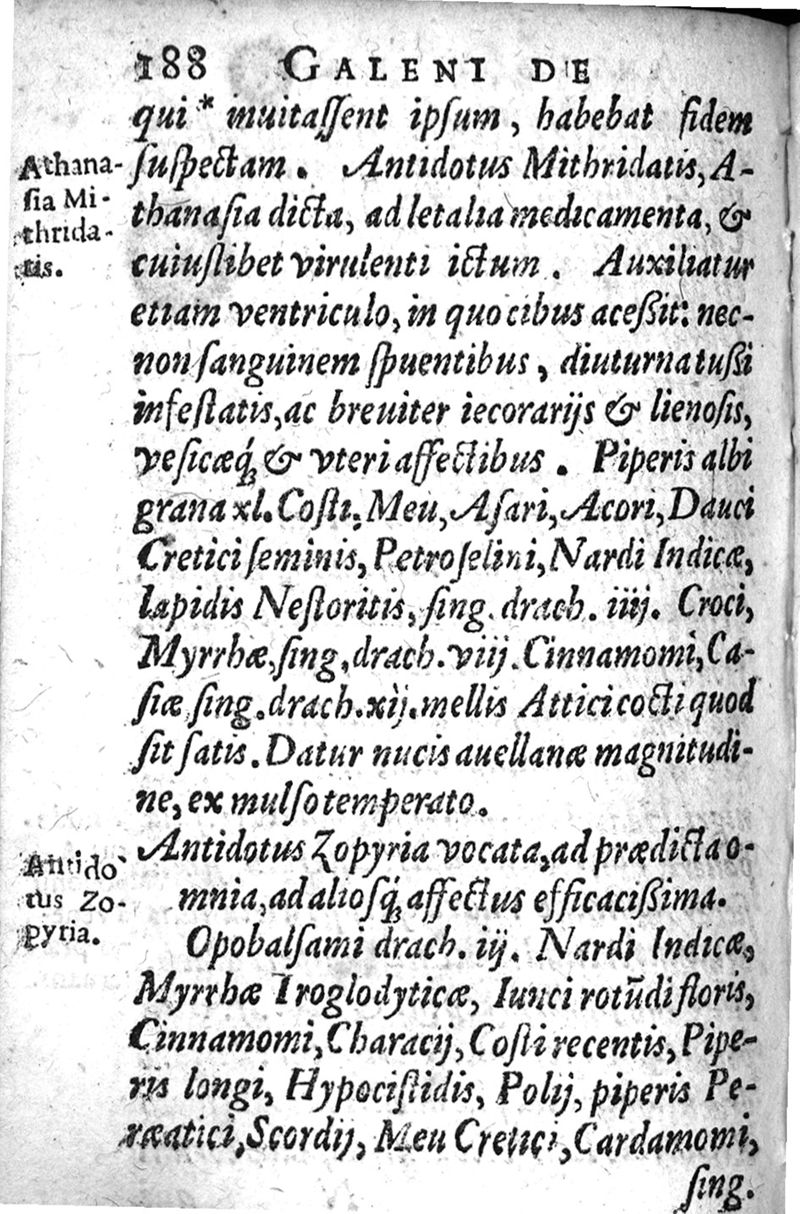 188 GALENI DE
qui * inuitaſſent ipſum, habebat fidem
ſuſpectam. Antidotus Mithridatis, A-
thanaſia dicta, ad letalia medicamenta, &
cuiuſlibet virulenti ictum. Auxiliatur
etiam ventriculo, in quo cibus aceßit: nec-
non ſanguinem ſpuentibus, diuturna tußi
infeſtatis, ac breuiter iecorarijs & lienoſis,
veſicæq́; & vteri affectibus. Piperis albi
grana xl. Coſti, Meu, Aſari, Acori, Dauci
Cretici ſeminis, Petroſelini, Nardi Indicæ,
lapidis Neſtoritis, ſing. drach. iiij. Croci,
Myrrhæ, ſing. drach. viij. Cinnamomi, Ca-
ſiæ ſing. drach. xij. mellis Attici cocti quod
ſit ſatis. Datur nucis auellanæ magnitudi-
ne, ex mulſo temperato.
Antidotus Zopyria vocata, ad prædicta o-
mnia, ad alioſq́; affectus efficacißima.
Opobalſami drach. iij. Nardi Indicæ,
Myrrhæ Troglodyticæ, Iunci rotūdi floris,
Cinnamomi, Characij, Coſti recentis, Pipe-
ris longi, Hypociſtidis, Polij, piperis Pe-
ræatici, Scordij, Meu Cretici, Cardamomi,
ſing.
Athana-
ſia Mi-
thrida-
tis.
Antido
tus Zo-
pyria.